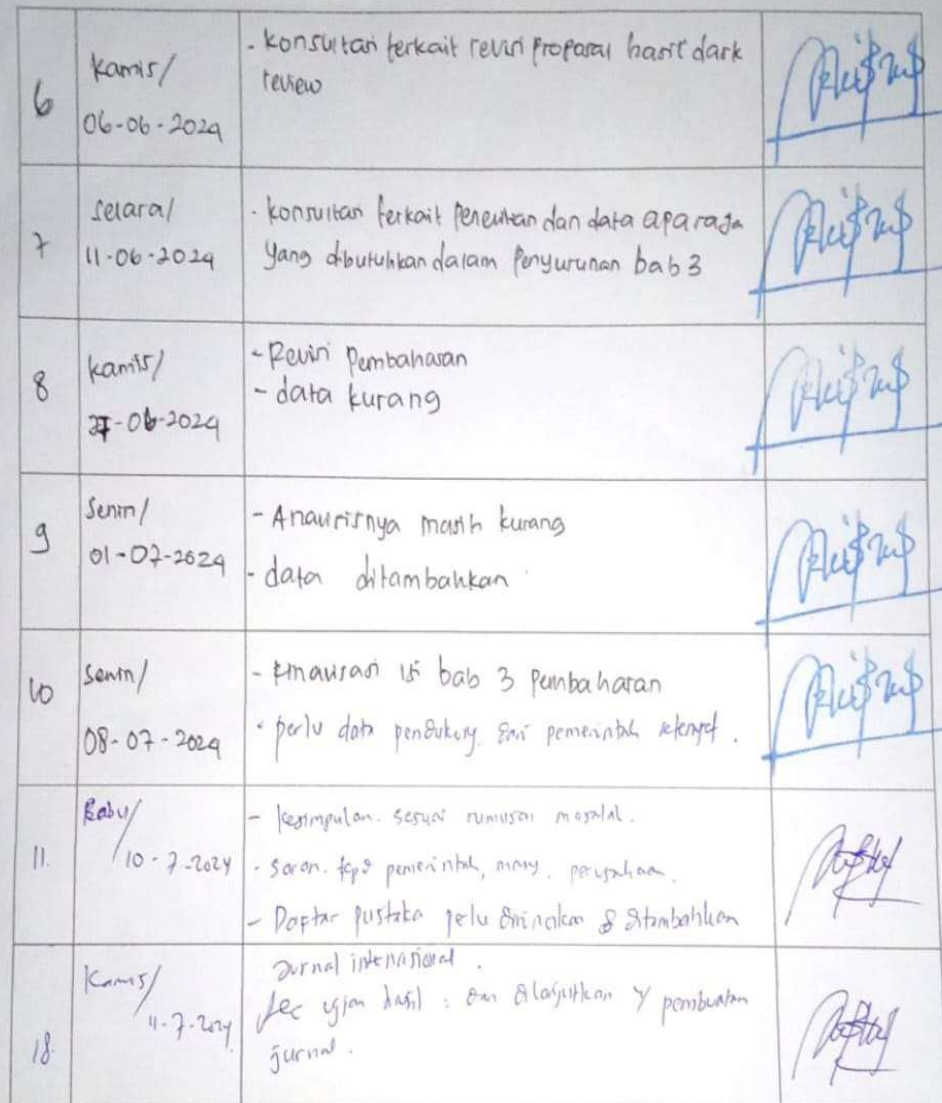 6
Kamis/
06-06-2024
- Konsultasi terkait revisi proposal hasil dark
review
7
Selasa/
11-06-2024
- Konsultasi terkait Penelitian dan data apa saja
yang dibutuhkan dalam Penyusunan bab 3
8
Kamis/
27-06-2024
- Revisi Pembahasan
- data kurang
9
Senin/
01-07-2024
- Analisisnya masih kurang
- data ditambahkan
10
Senin/
08-07-2024
- isi bab 3 pembahasan
- perlu data pendukung dari pemerintah setempat.
11.
Rabu/
10-7-2024
- Kesimpulan. sesuai rumusan masalah.
- Saran. kpd pemerintah, masy. perusahaan.
- Daftar pustaka perlu & ditambahkan
Jurnal internasional.
18.
Kamis/
11-7-2024
Acc ujian hasil : dan dilanjutkan pembuatan
jurnal.